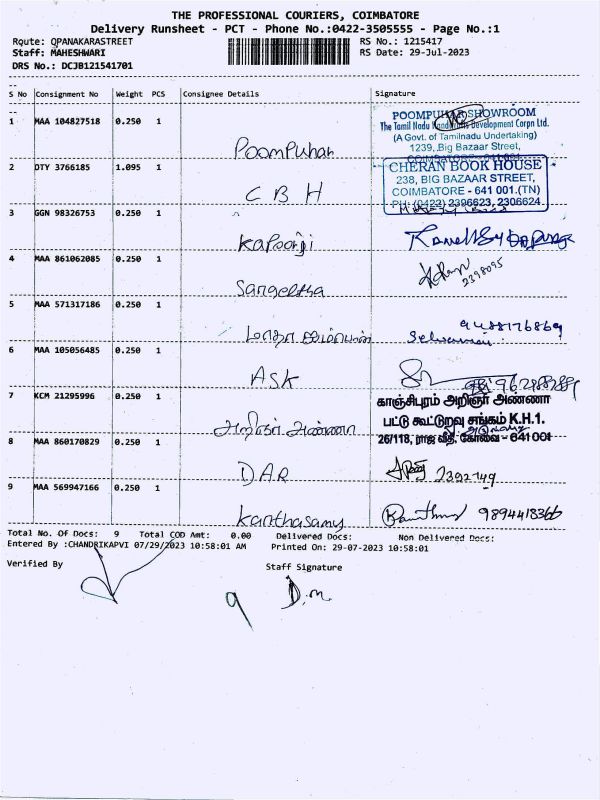 THE PROFESSIONAL COURIERS, COIMBATORE
Delivery Runsheet - PCT - Phone No.:0422-3505555 - Page No.:1
Route: QPANAKARASTREET RS No.: 1215417
Staff: MAHESHWARI RS Date: 29-Jul-2023
DRS No.: DCJB121541701
S No Consignment No Weight PCS Consignee Details Signature
1 MAA 104827518 0.250 1 Poompuhar
POOMPUHAR SHOWROOM
The Tamil Nadu Handicrafts Development Corpn Ltd.
(A Govt. of Tamilnadu Undertaking)
1239, Big Bazaar Street,
COIMBATORE - 641 001.
2 DTY 3766185 1.095 1 C B H
CHERAN BOOK HOUSE
238, BIG BAZAAR STREET,
COIMBATORE - 641 001.(TN)
PH: (0422) 2396623, 2306624
3 GGN 98326753 0.250 1 Kapoorji
4 MAA 861062085 0.250 1 Sangeetha 2398095
5 MAA 571317186 0.250 1 9488176869
6 MAA 105056485 0.250 1 ASK
7 KCM 21295996 0.250 1 அறிஞர் அண்ணா
காஞ்சிபுரம் அறிஞர் அண்ணா
பட்டு கூட்டுறவு சங்கம் K.H.1.
26/118, ராஜ வீதி, கோவை - 641 001
8 MAA 860170829 0.250 1 DAR 2392749
9 MAA 569947166 0.250 1 Kanthasamy 9894418366
Total No. Of Docs: 9 Total COD Amt: 0.00 Delivered Docs: Non Delivered Docs:
Entered By :CHANDRIKAPVI 07/29/2023 10:58:01 AM Printed On: 29-07-2023 10:58:01
Verified By Staff Signature
9 D.m.